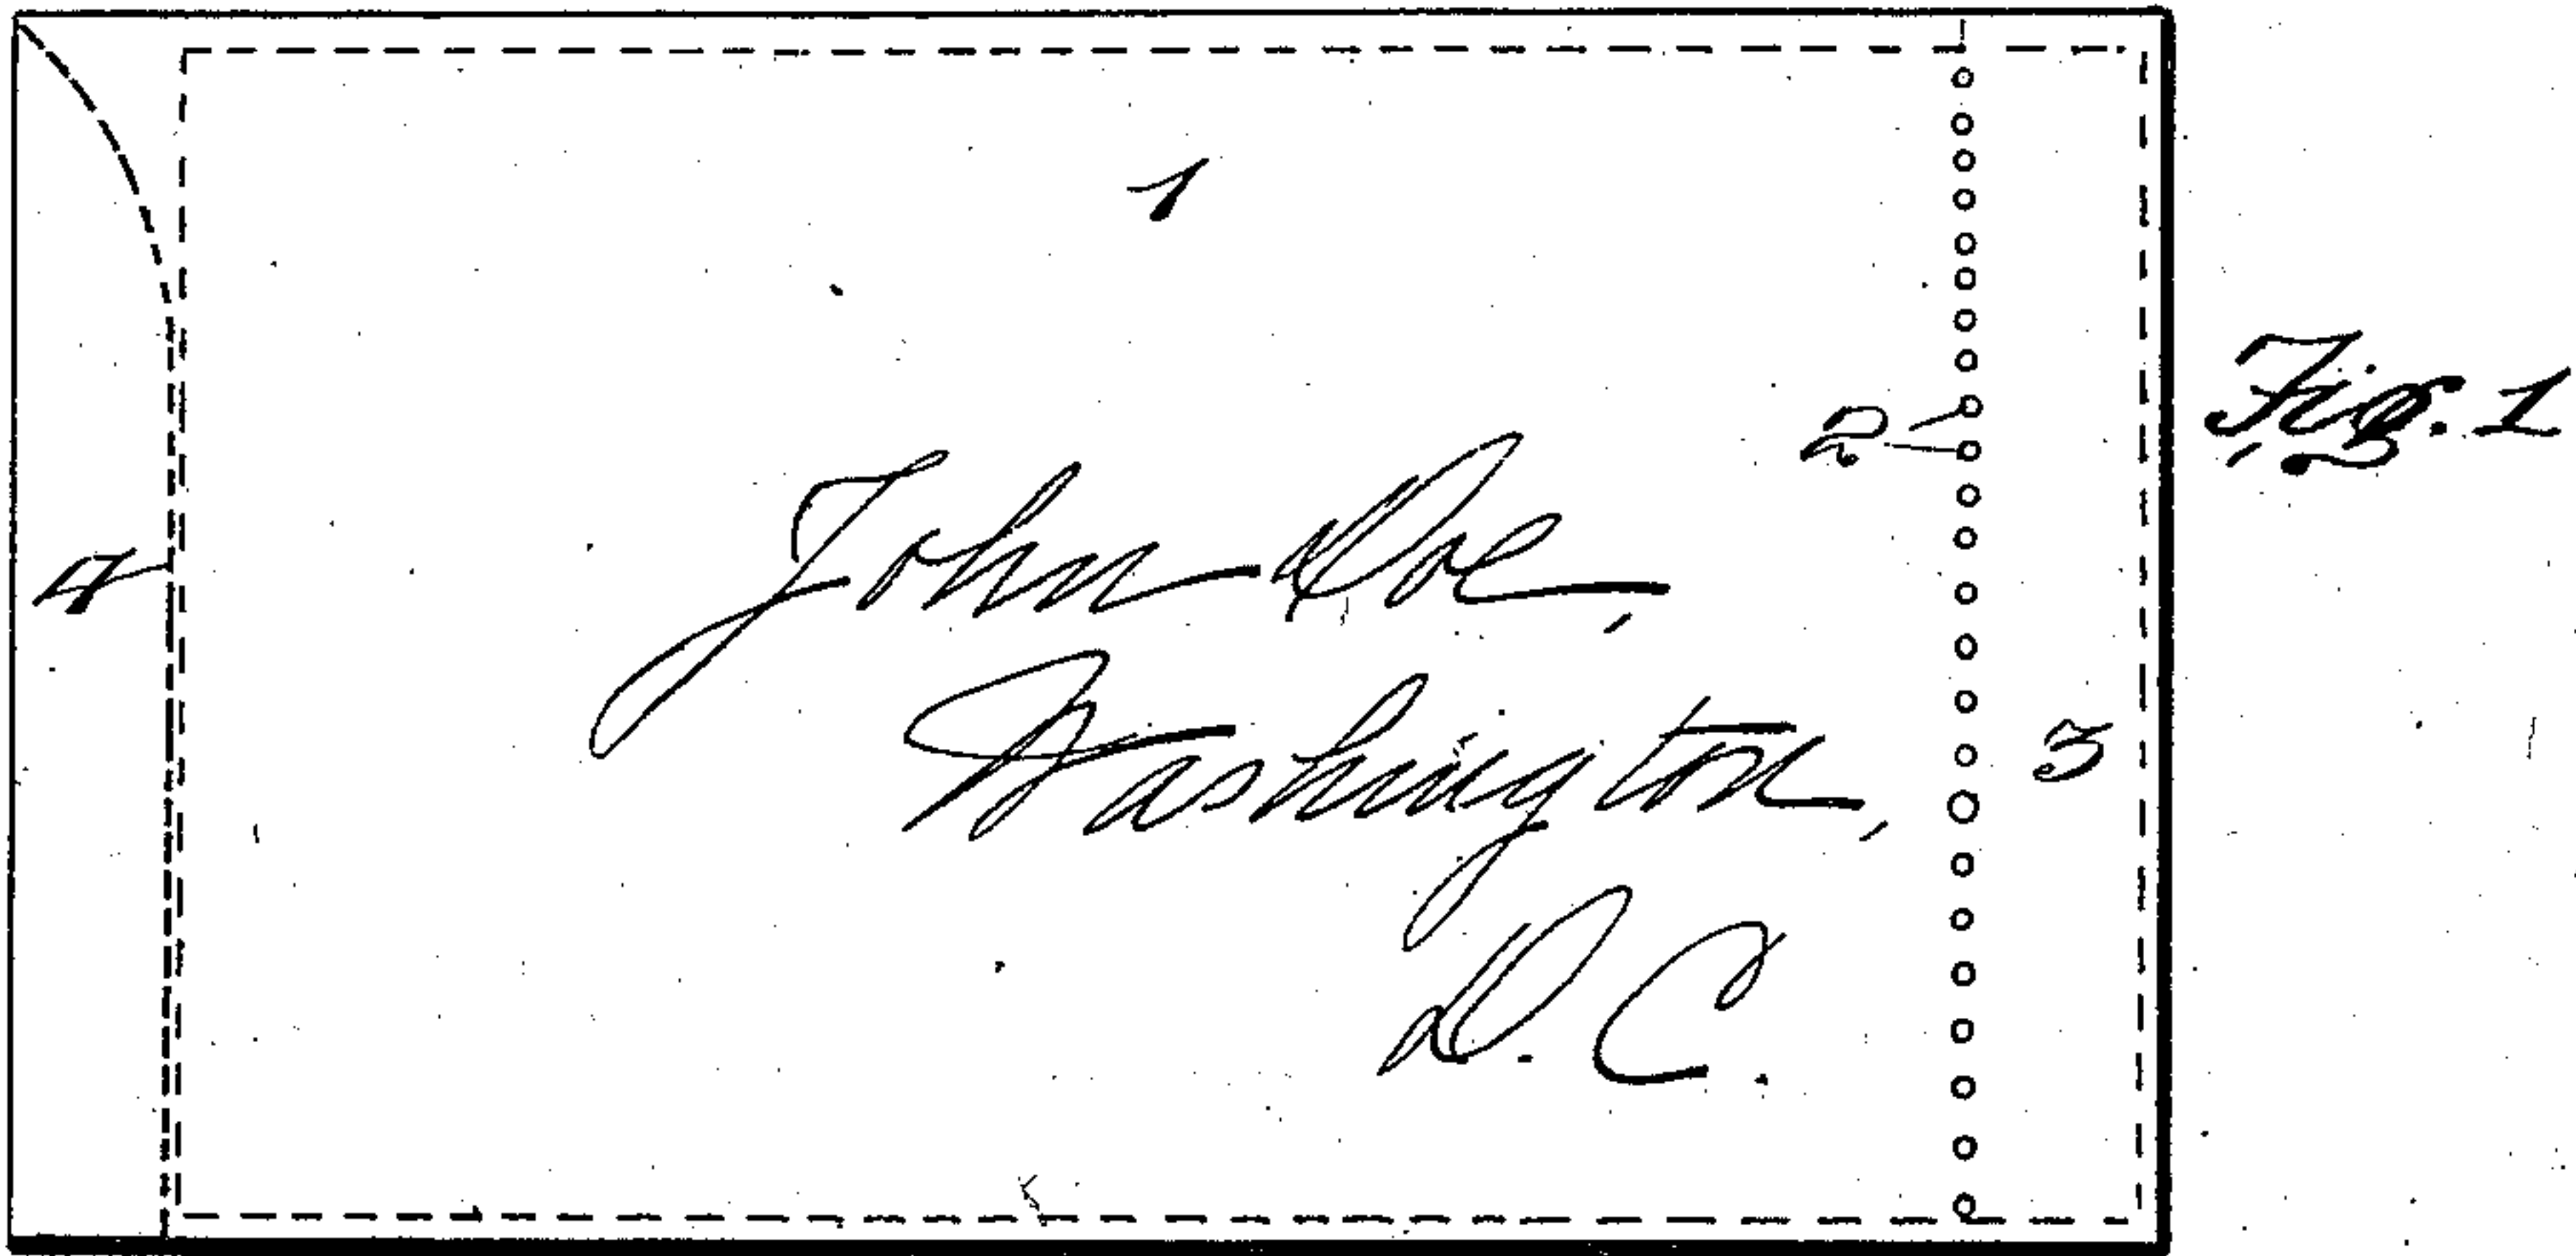 1
2
Fig. 1
John Doe,
4
Washington,
3
D. C.